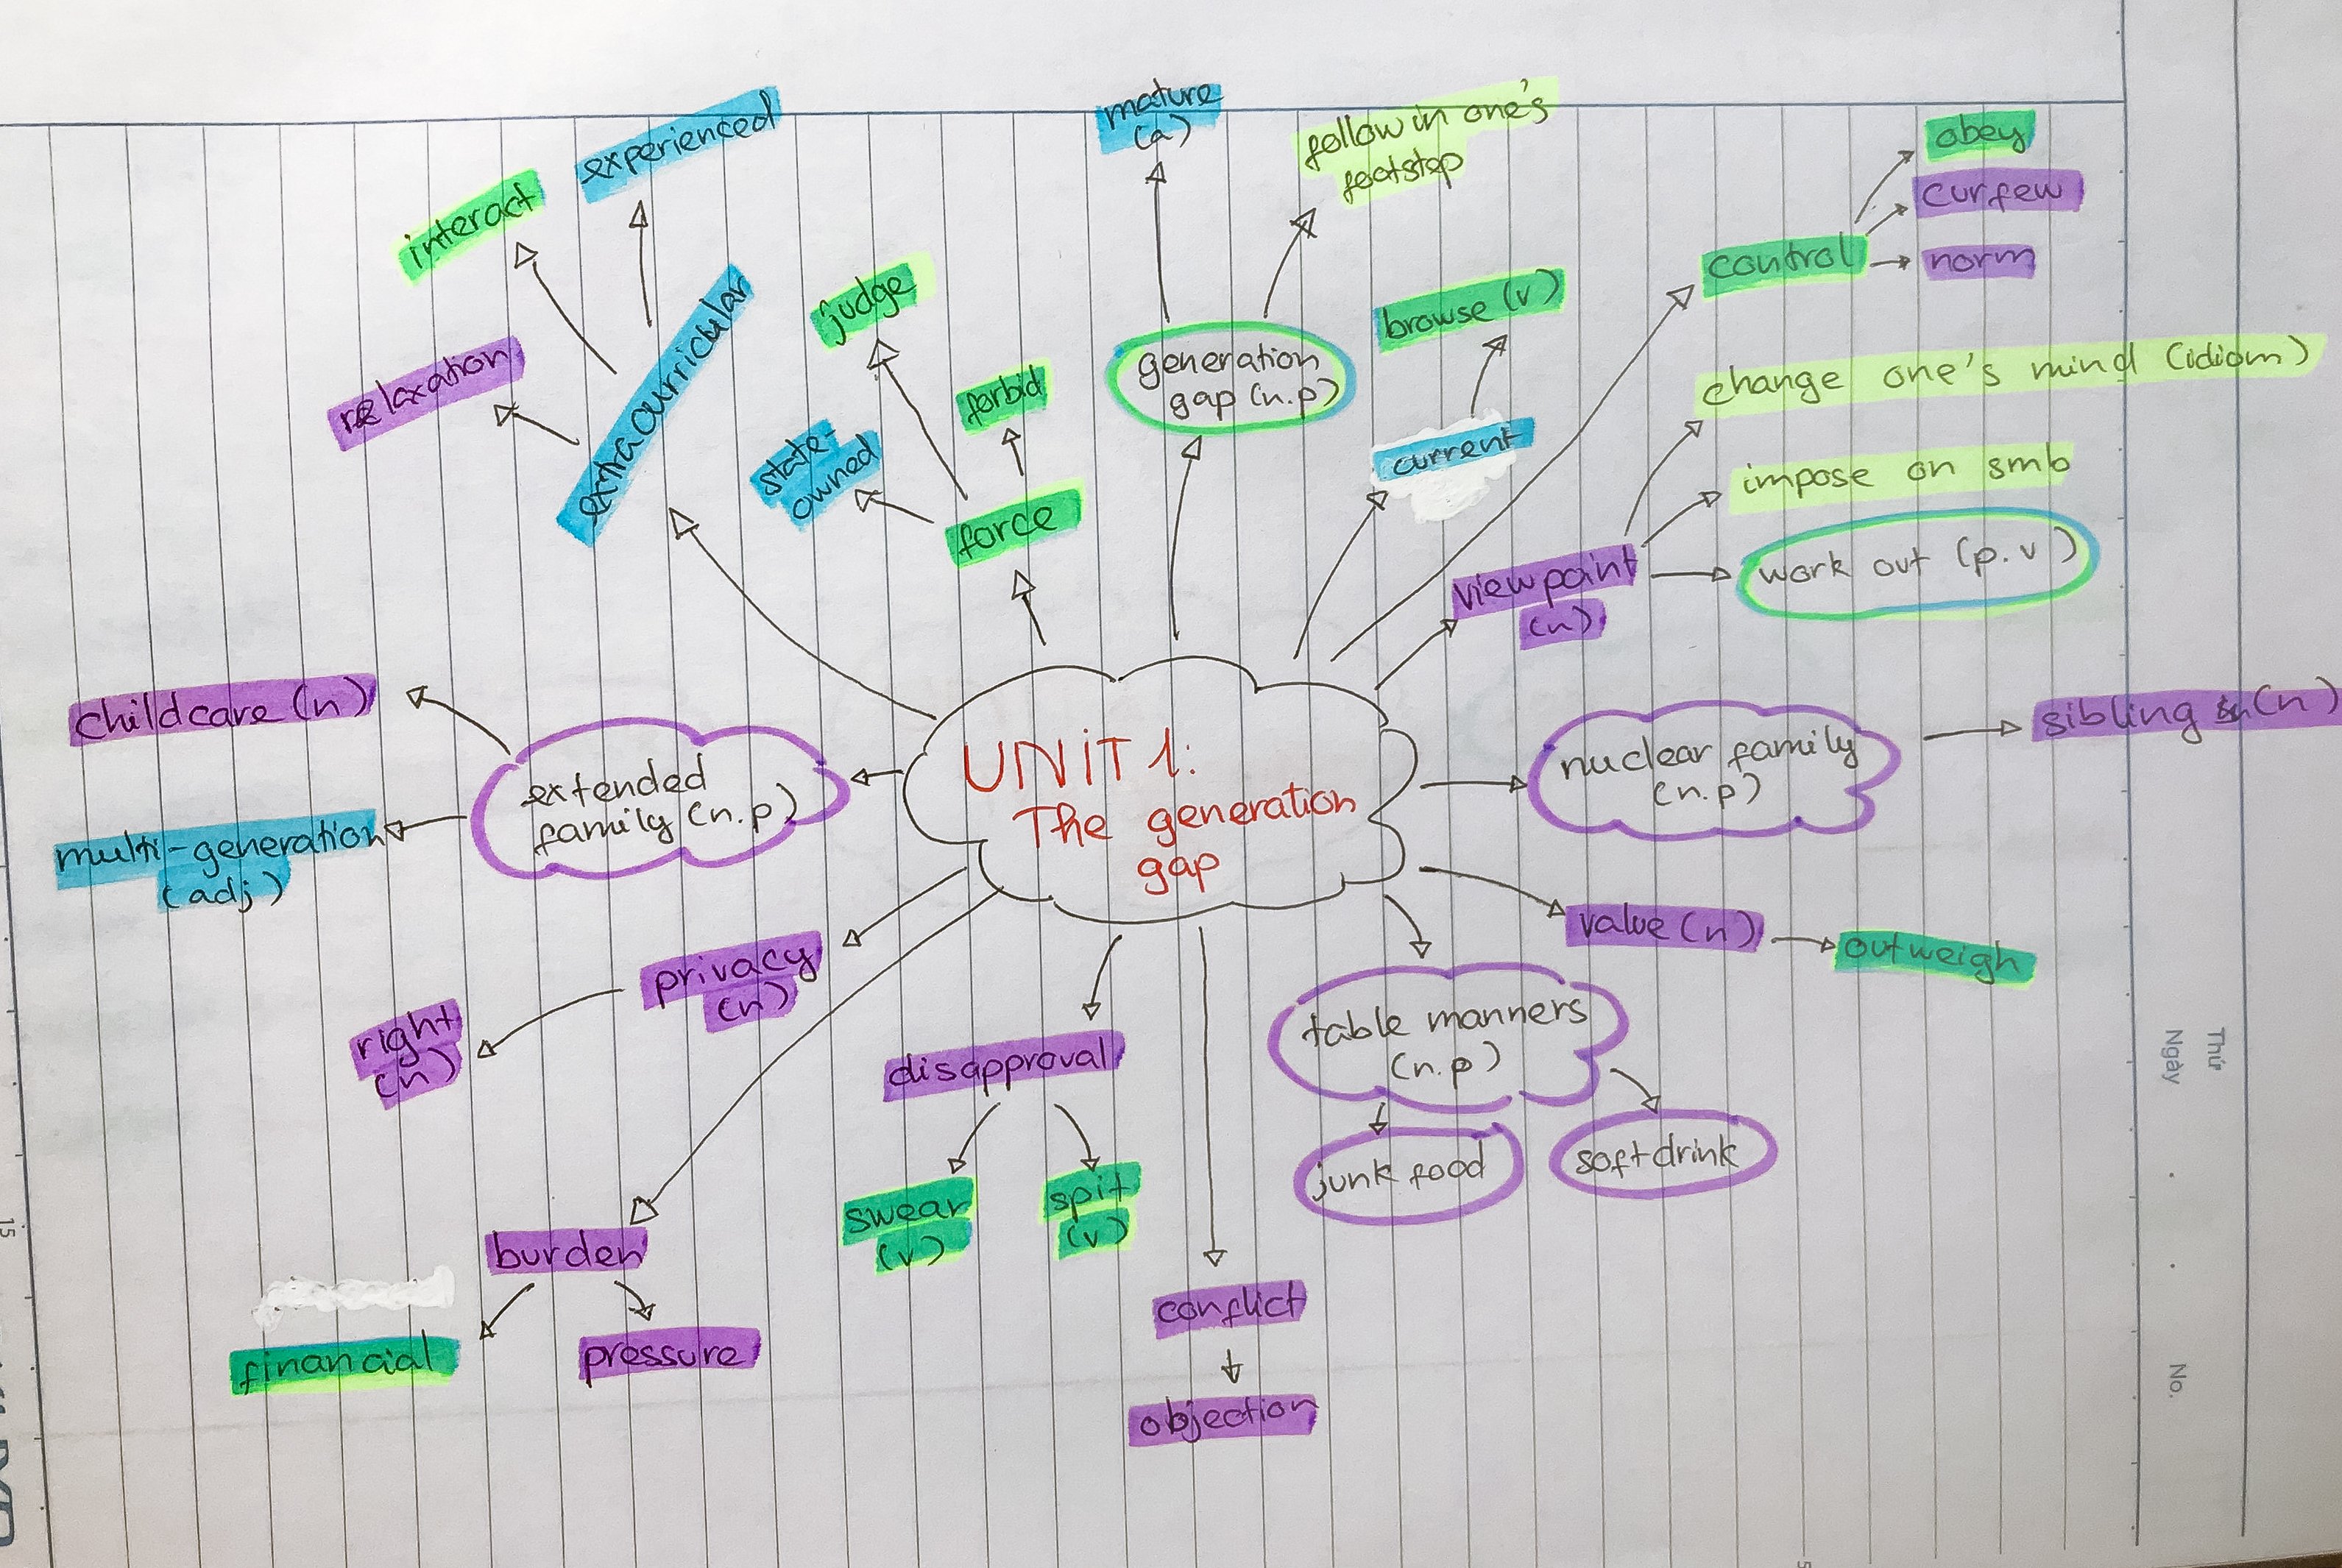 UNIT 1:
The generation
gap
generation
gap (n.p)
mature
(a)
follow in one's
footstep
current
browse (v)
control
obey
curfew
norm
viewpoint
(n)
change one's mind (idiom)
impose on smb
work out (p.v)
nuclear family
(n.p)
sibling (n)
value (n)
outweigh
table manners
(n.p)
junk food
soft drink
conflict
objection
disapproval
swear
(v)
spit
(v)
burden
financial
pressure
privacy
(n)
right
(n)
extended
family (n.p)
childcare (n)
multi-generation
(adj)
extracurricular
relaxation
interact
experienced
force
state-
owned
judge
forbid
Thứ
Ngày
No.
15
5